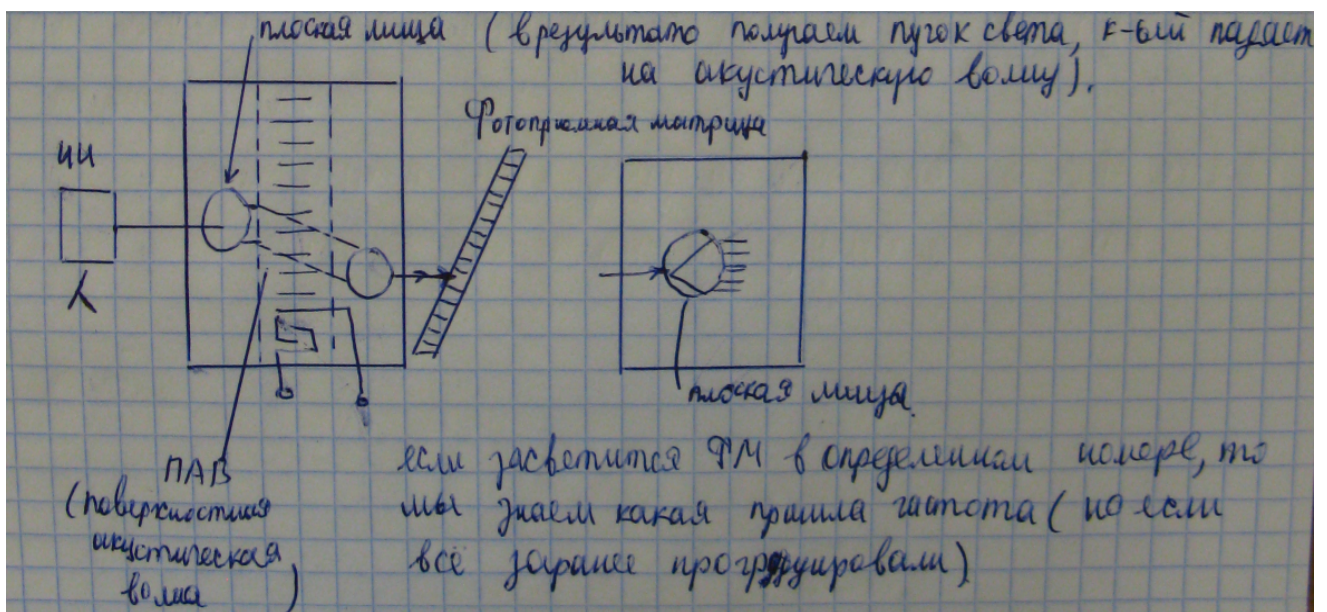 плоская линза (в результате получаем пучок света, к-ый падает
на акустическую волну).
Фотоприемная матрица
ИИ
λ
плоская линза.
ПАВ
(поверхностная
акустическая
волна)
если засветится ФМ в определенном номере, то
мы знаем какая пришла частота (но если
всё заранее проградуировали)